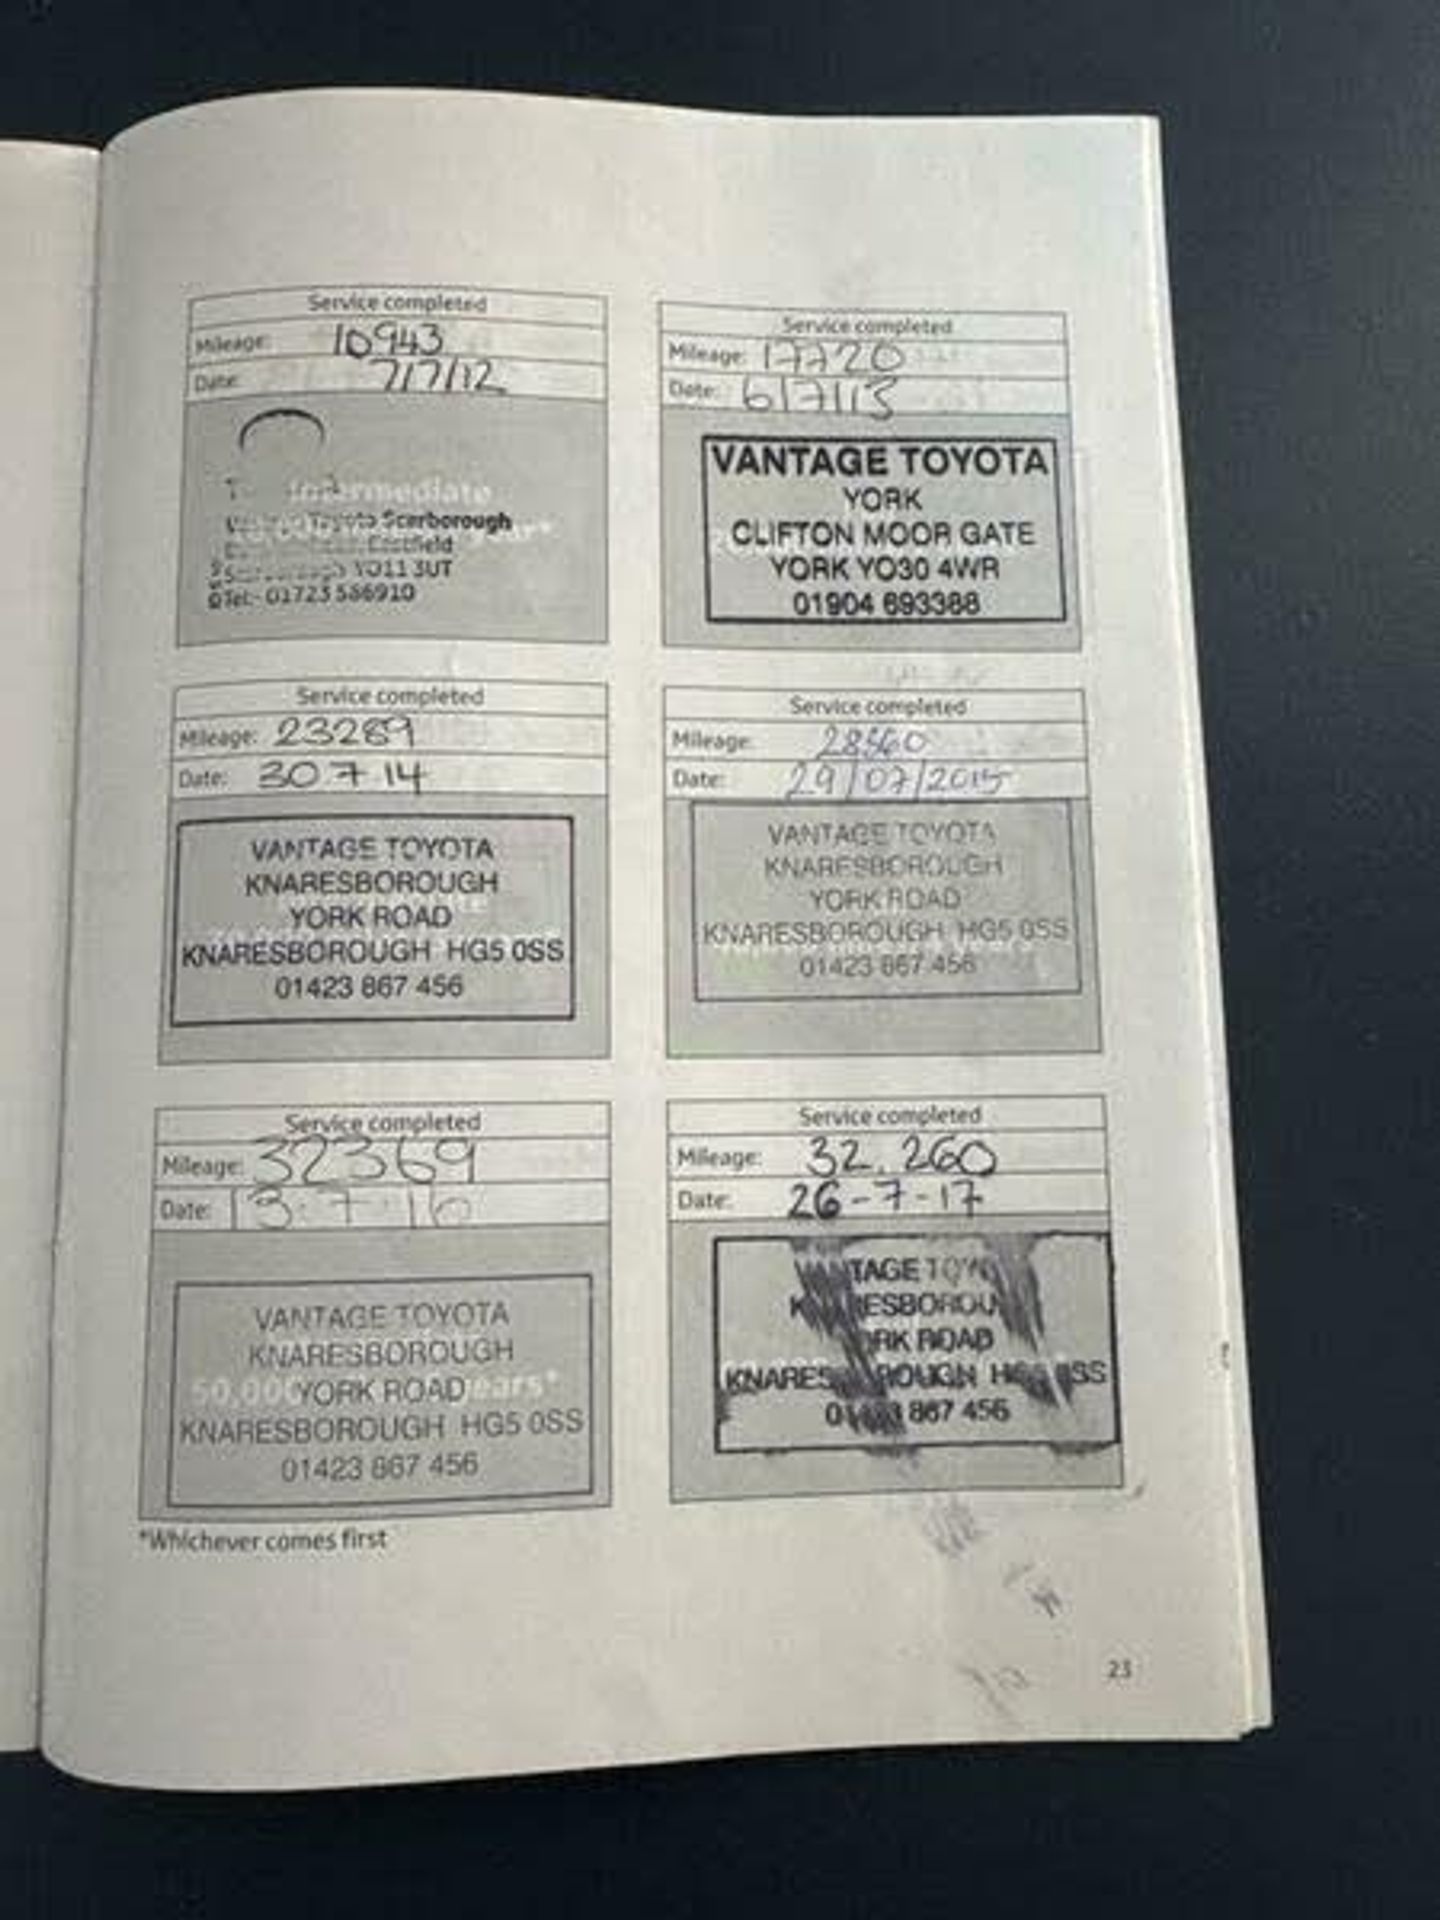 Service completed
Mileage: 10943
Date: 7/7/12
Intermediate
Toyota Scarborough
Eastfield
YO11 3UT
Tel:- 01723 586910
Service completed
Mileage: 17720
Date: 6/7/13
VANTAGE TOYOTA
YORK
CLIFTON MOOR GATE
YORK YO30 4WR
01904 693388
Service completed
Mileage: 23289
Date: 30 7 14
VANTAGE TOYOTA
KNARESBOROUGH
YORK ROAD
KNARESBOROUGH HG5 0SS
01423 867 456
Service completed
Mileage:
Date: 29/07/2015
VANTAGE TOYOTA
KNARESBOROUGH
YORK ROAD
KNARESBOROUGH HG5 0SS
01423 867 456
Service completed
Mileage: 32369
Date: 13.7.16
VANTAGE TOYOTA
KNARESBOROUGH
YORK ROAD
KNARESBOROUGH HG5 0SS
01423 867 456
Service completed
Mileage: 32,260
Date: 26-7-17
VANTAGE TOYOTA
KNARESBOROUGH
YORK ROAD
KNARESBOROUGH HG5 0SS
01423 867 456
*Whichever comes first
23